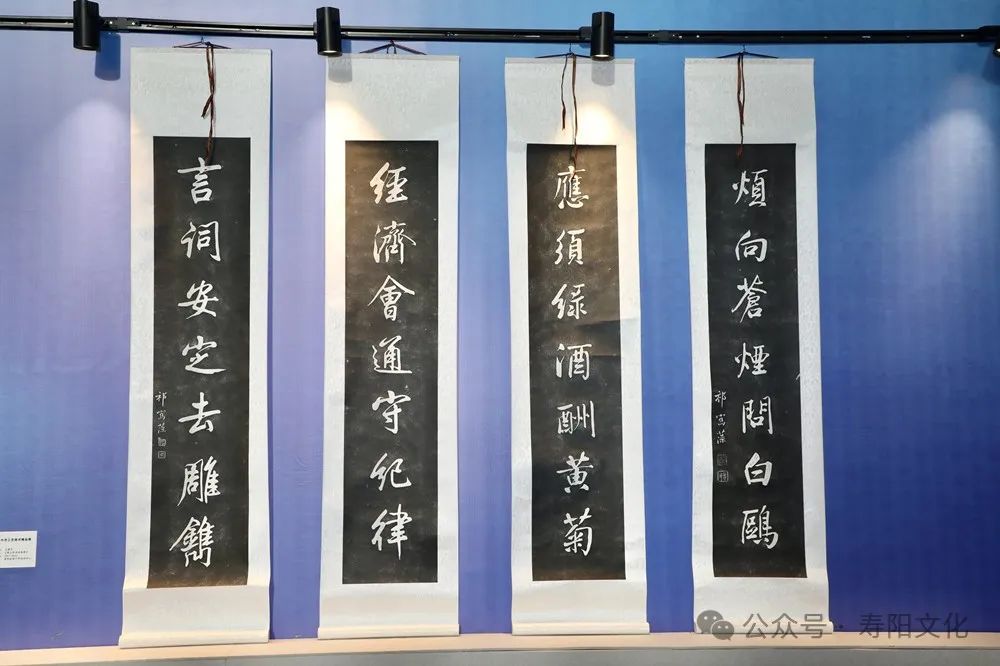 煩向蒼煙問白鷗
祁寯藻
應須綠酒酬黃菊
經濟會通守紀律
言詞安定去雕鐫
祁寯藻
公众号 · 寿阳文化